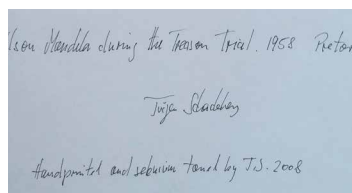 lson Mandela during the Treason Trial. 1958 Pretor
Jürgen Schadeberg
Handprinted and selenium toned by J.S. 2008